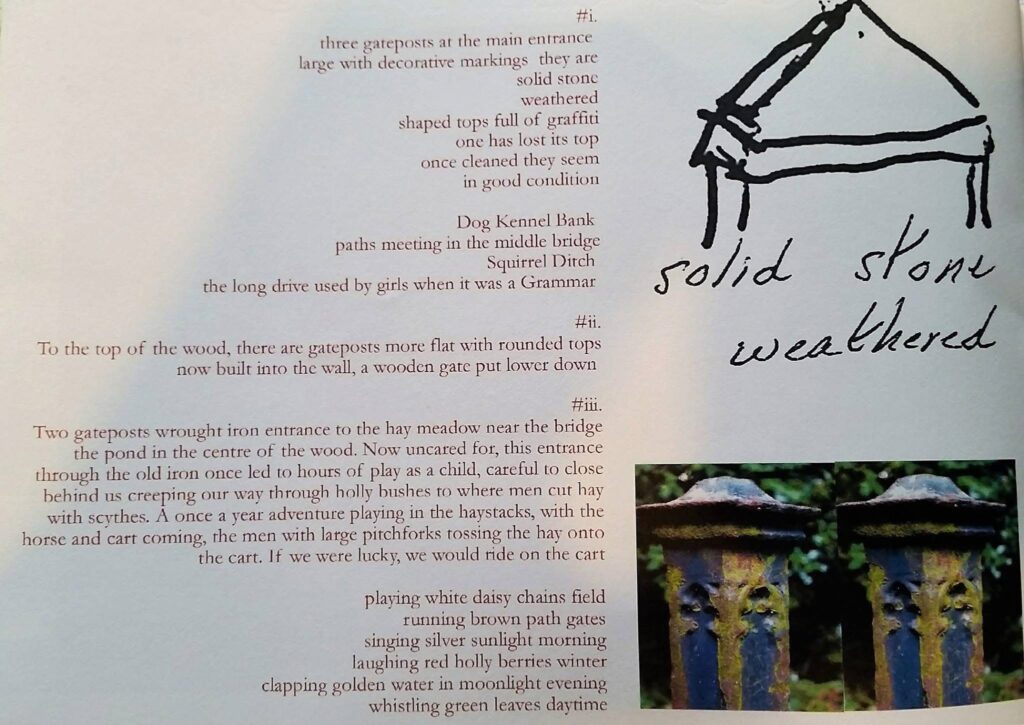 #i.
three gateposts at the main entrance
large with decorative markings they are
solid stone
weathered
shaped tops full of graffiti
one has lost its top
once cleaned they seem
in good condition
Dog Kennel Bank
paths meeting in the middle bridge
Squirrel Ditch
the long drive used by girls when it was a Grammar
#ii.
To the top of the wood, there are gateposts more flat with rounded tops
now built into the wall, a wooden gate put lower down
#iii.
Two gateposts wrought iron entrance to the hay meadow near the bridge
the pond in the centre of the wood. Now uncared for, this entrance
through the old iron once led to hours of play as a child, careful to close
behind us creeping our way through holly bushes to where men cut hay
with scythes. A once a year adventure playing in the haystacks, with the
horse and cart coming, the men with large pitchforks tossing the hay onto
the cart. If we were lucky, we would ride on the cart
playing white daisy chains field
running brown path gates
singing silver sunlight morning
laughing red holly berries winter
clapping golden water in moonlight evening
whistling green leaves daytime
solid stone
weathered